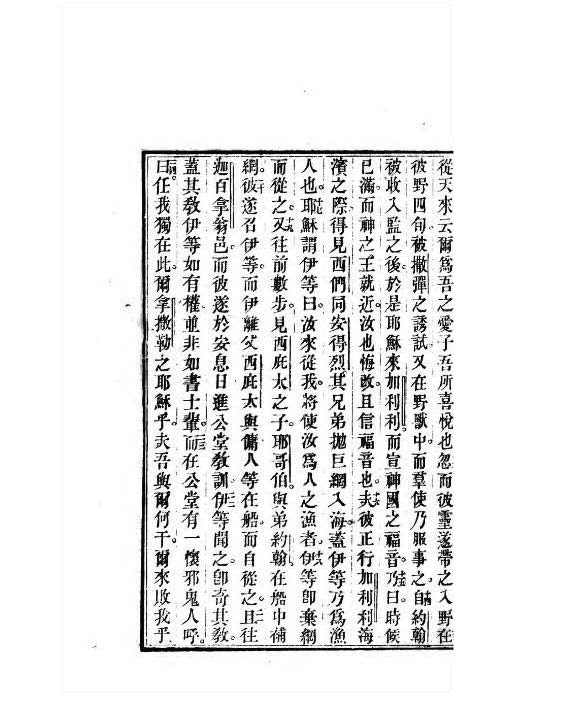 從天來云爾爲吾之愛子吾所喜悅也忽而彼靈遂帶之入野在
彼野四旬被撒彈之誘試又在野獸中而羣使乃服事之自約翰
被收入監之後於是耶穌來加利利而宣神國之福音乃曰時候
已滿而神之王就近汝也悔改且信福音也夫彼正行加利利海
濱之際得見西們同安得烈其兄弟拋巨網入海蓋伊等乃爲漁
人也耶穌謂伊等曰汝來從我將使汝爲人之漁者伊等卽棄網
而從之又往前數步見西庇太之子耶哥伯與弟約翰在船中補
網彼遂召伊等而伊離父西庇太與傭人等在船而自從之且往
迦百拿翁邑而彼遂於安息日進公堂敎訓伊等聞之卽奇其敎
蓋其敎伊等如有權並非如書士輩而在公堂有一懷邪鬼人呼
曰任我獨在此爾拿撒勒之耶穌乎夫吾與爾何干爾來敗我乎